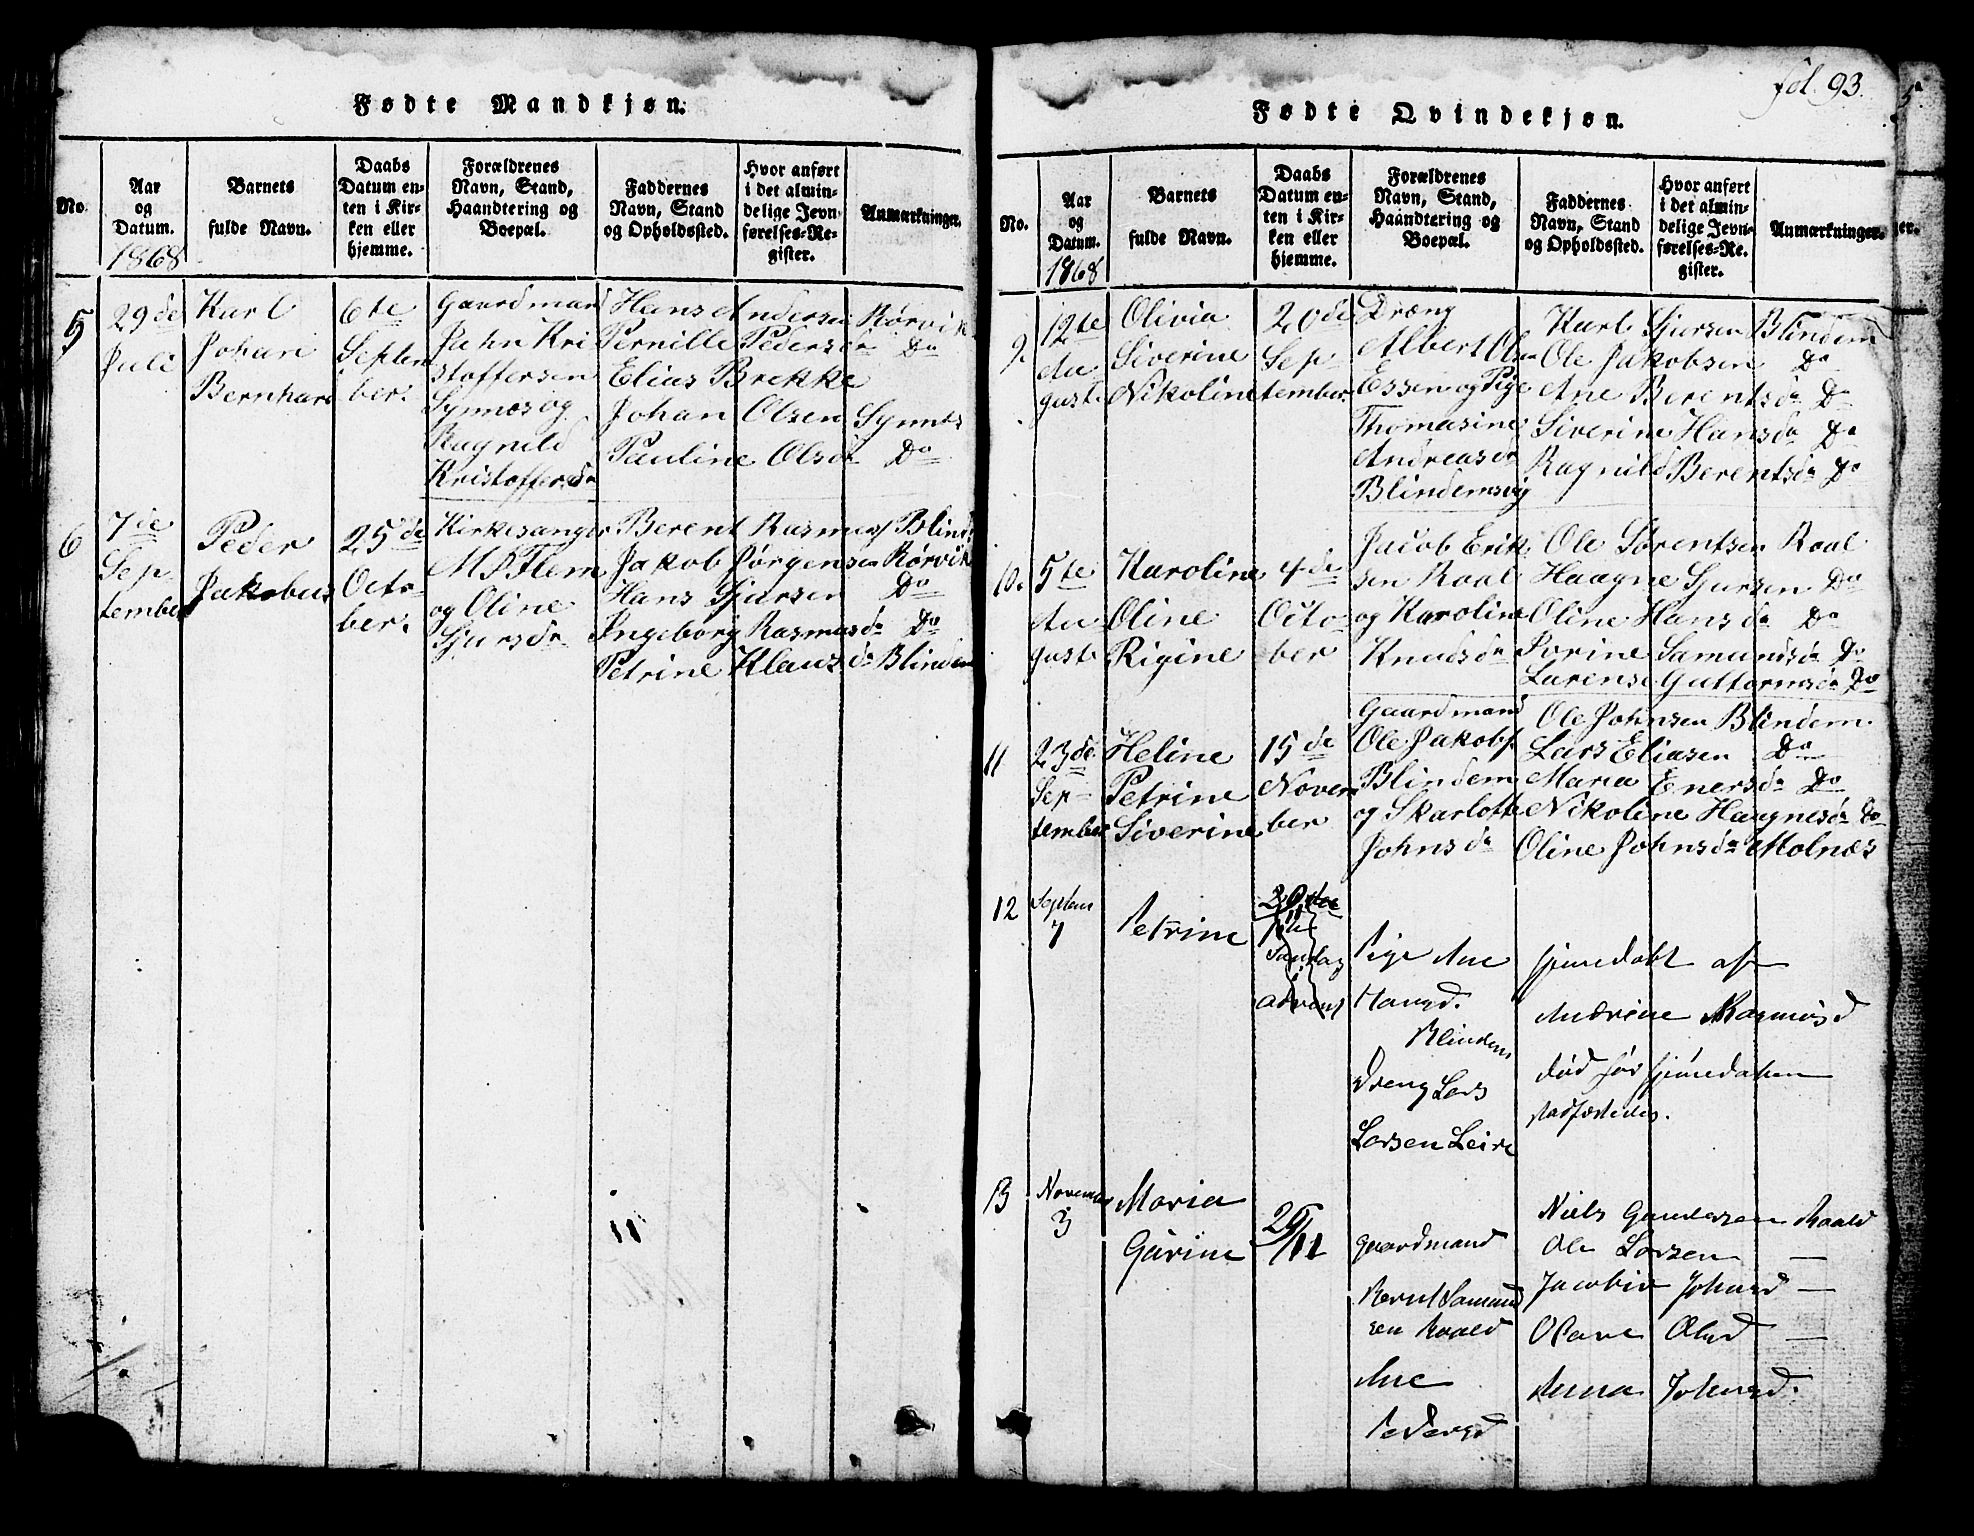 Fødte Mandkjøn.
No.
Aar
og
Datum.
1868
Barnets
fulde Navn.
Daabs
Datum en-
ten i Kir-
ken eller
hjemme.
Forældrenes
Navn, Stand,
Haandtering og
Boepæl.
Faddernes
Navn, Stand
og Opholdssted.
Hvor anført
i det almin-
delige Jevn-
førelses-Re-
gister.
Anmærkninger.
5
29de
Juli
Karl
Johan
Bernhard
6te
Septem
ber.
Gaardmand
Jahn Kri
stoffersen
Synnes og
Ragnild
Kristoffersda
Hans Andersen Rørvik
Pernille Pedersda Do
Elias Brekke
Johan Olsen Synnes
Pauline Olsda Do
6
7de
Sep
tember
Peder
Jakobus
25de
Octo
ber.
Kirkesanger
M P Flem
og Oline
Sjursda
Berent Rasmus Blind
Jakob Jørgensen Rørvik
Hans Sjursen Do
Ingeborg Rasmusda Do
Petrine Klausda Blindem
11
fol. 93.
Fødte Qvindekjøn.
No.
Aar
og
Datum.
1868
Barnets
fulde Navn.
Daabs
Datum en-
ten i Kir-
ken eller
hjemme.
Forældrenes
Navn, Stand,
Haandtering og
Boepæl.
Faddernes
Navn, Stand
og Opholdssted.
Hvor anført
i det almin-
delige Jevn-
førelses-Re-
gister.
Anmærkninger.
9.
12te
Au
gust.
Olivia
Siverine
Nikoline
20de
Sep
tember
Dræng
Albert Olsen
Essen og Pige
Thomasine
Andreasda
Blindemsvig
Karl Sjursen Blindem
Ole Jakobsen Do
Ane Berentsda Do
Siverine Hansda Do
Ragnild Berentsda Do
10.
5te
Au
gust.
Karoline
Oline
Rigine
4de
Octo-
ber
Jacob Erik
sen Roal
og Karoline
Knudsda
Ole Sørentsen Roal
Haagne Sjursen Do
Oline Hansda Do
Sorine Samundsda Do
Larense Guttormsda Do
11
23de
Sep-
tember
Heline
Petrine
Siverine
15de
Novem
ber
Gaardmand
Ole Jakobs.
Blindem
og Skarlotte
Johnsda
Ole Johnsen Blindem.
Lars Eliasen Do
Maria Enersda Do
Nikoline Haagnesda Do
Oline Johnsda Molnæs
12
Septem
7
Petrine
Søndag
advent
Pige Ane
Hansd.
Blindem
Dreng Lars
Larsen Leire
hjemedøbt af
Andrine Rasmusd
død før hjemedaaben
stadfæstedes.
13
November
3
Maria
Gurine
29/11
gaardmand
Bernt Samund
sen Roald
Ane
Pedersd
Niels Gundersen Roald
Ole Larsen —
Jacobine Johnsd —
Olave Olsd —
Anna Johnsd.